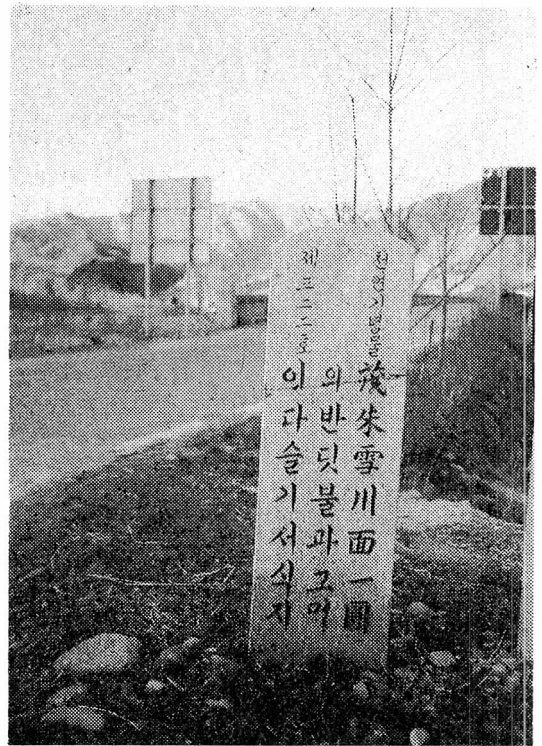 천연기념물
제三二二호
茂朱雪川面一圓
의반딧불과그먹
이다슬기서식지